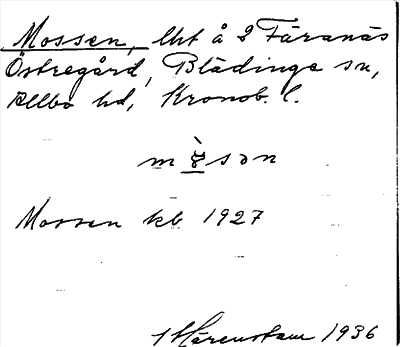 Mossen, lht å 2 Färanäs
Östregård, Blädinge sn,
Allbo hd, Kronob. l.
Mossen kb 1927
Härenstam 1936